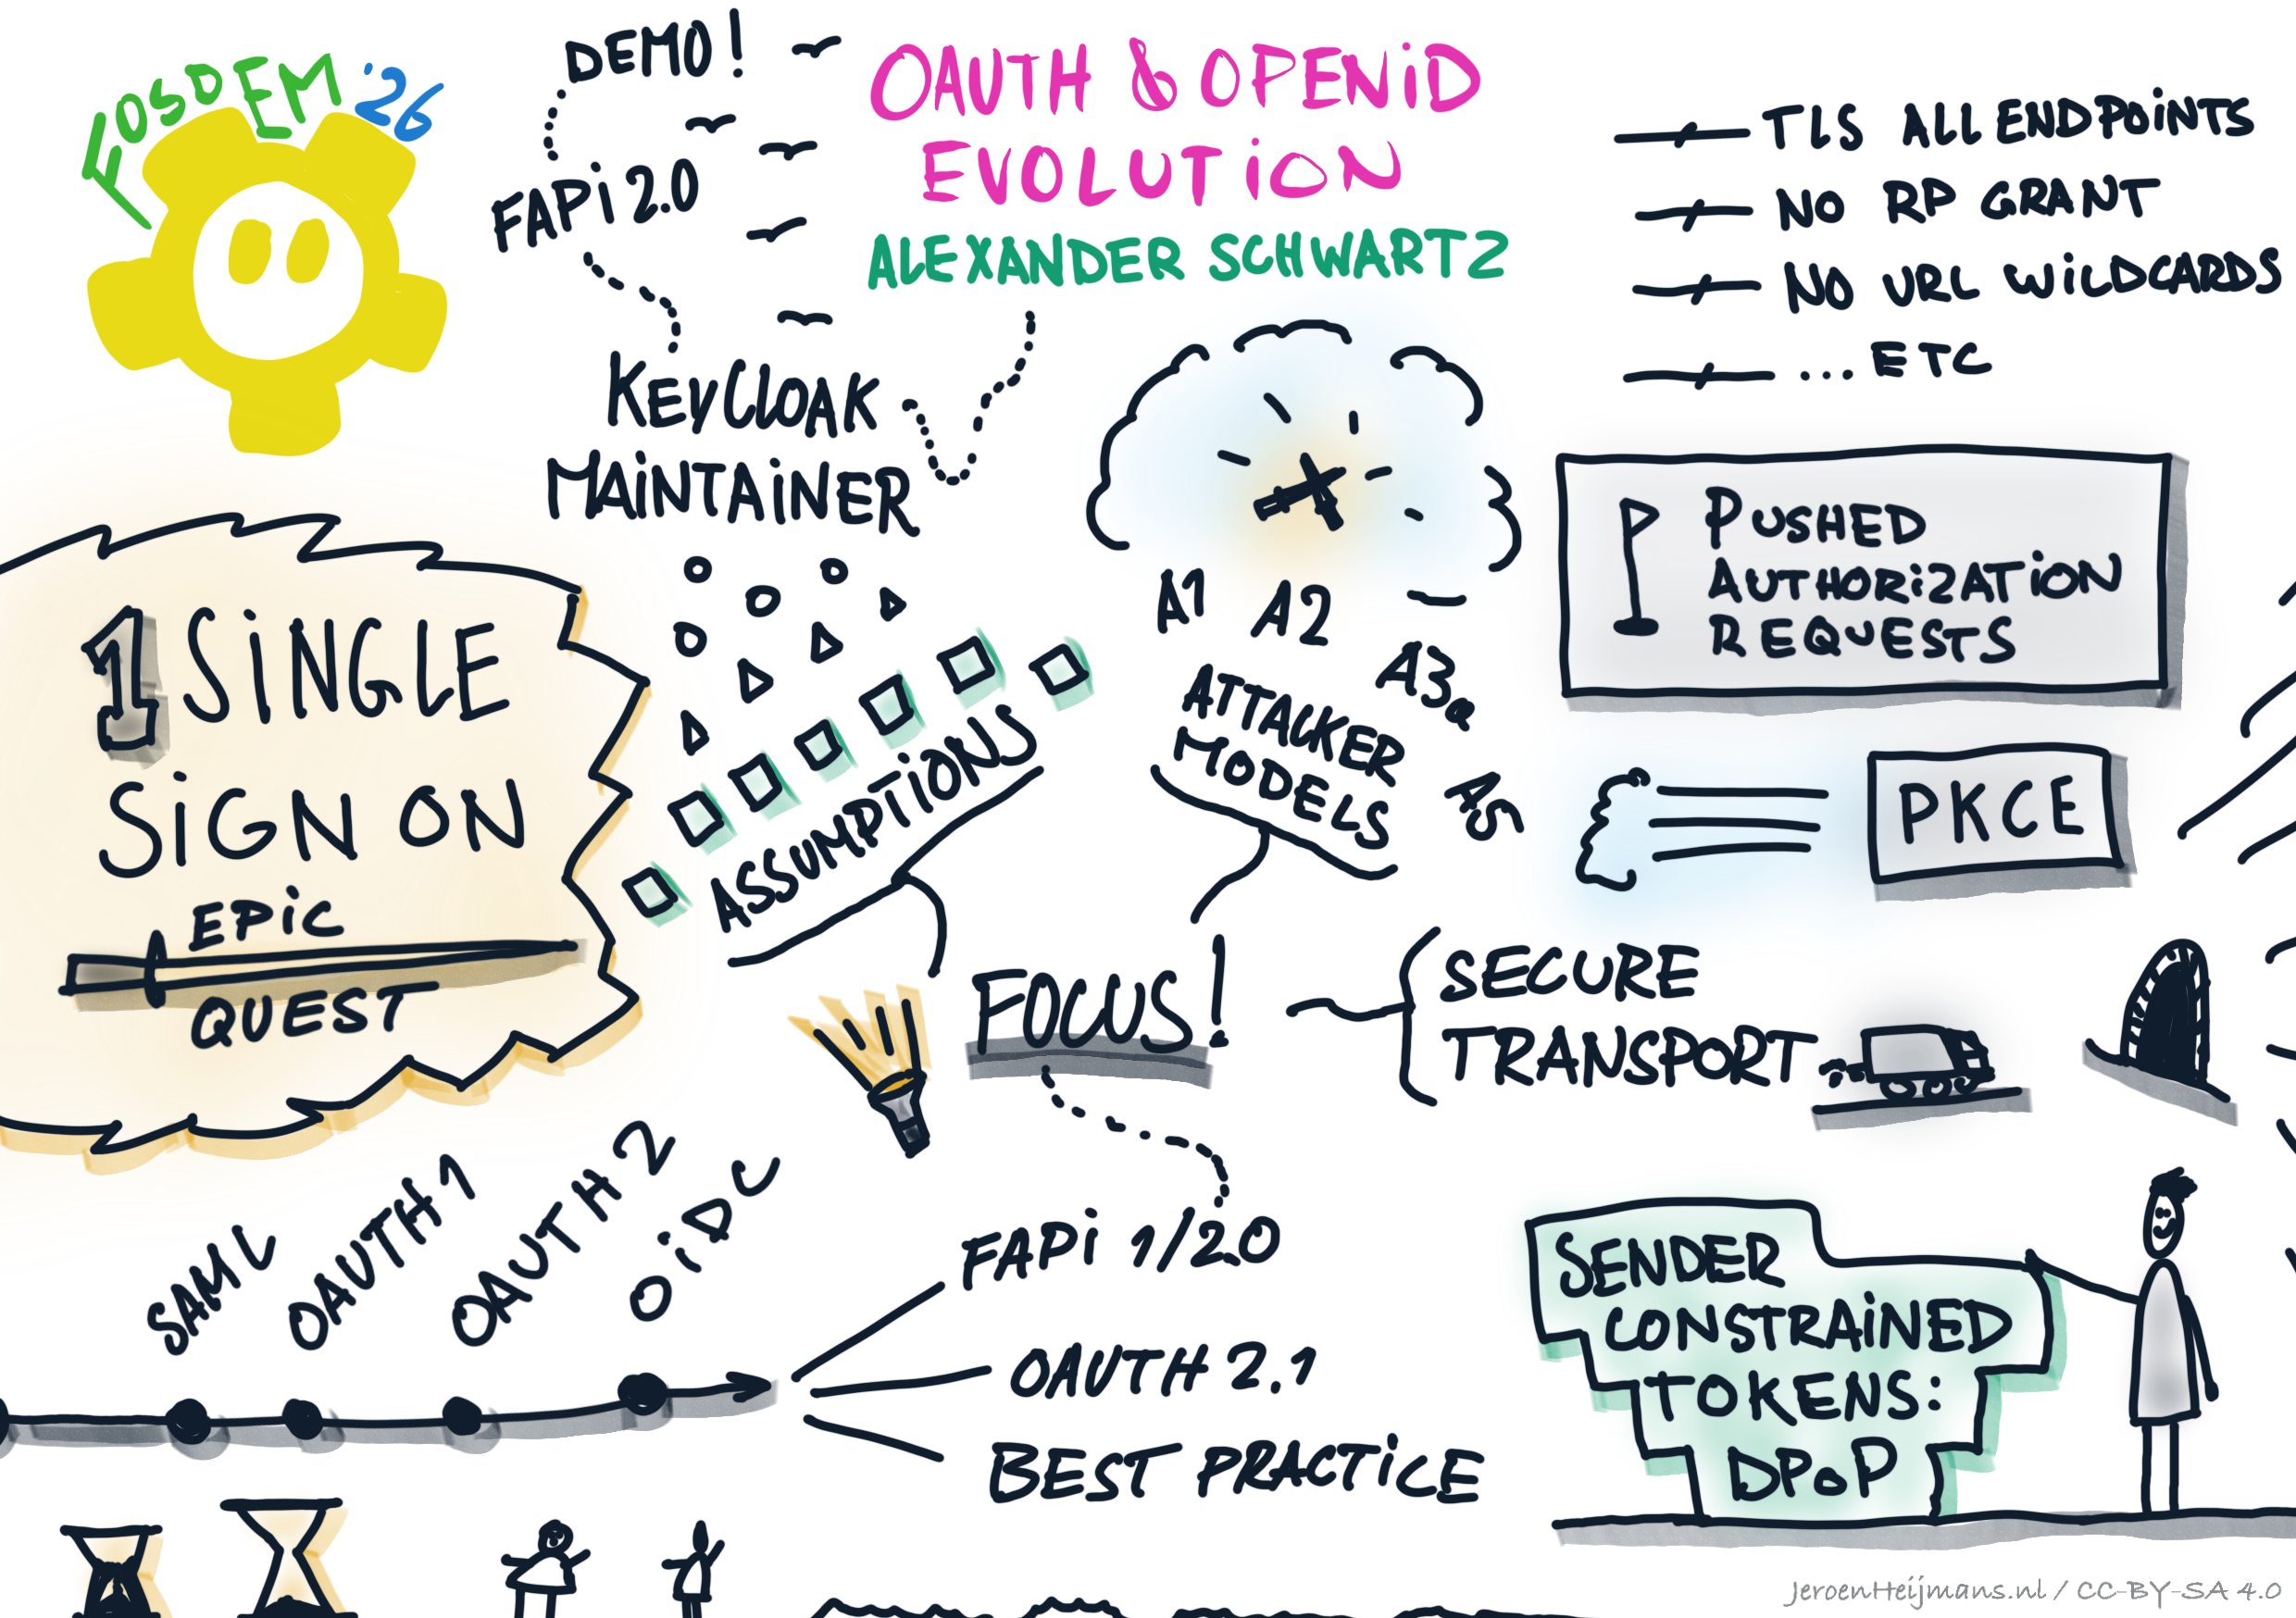 FOSDEM '26
DEMO!
FAPi 2.0
KEYCLOAK
MAiNTAiNER
OAUTH & OPENiD
EVOLUTiON
ALEXANDER SCHWARTZ
TLS ALL ENDPOiNTS
NO RP GRANT
NO URL WiLDCARDS
... ETC
1 SiNGLE
SiGN ON
EPiC
QUEST
ASSUMPTiONS
A1
A2
A3a
A5
ATTACKER
MODELS
PUSHED
AUTHORiZATiON
REQUESTS
PKCE
FOCUS!
SECURE
TRANSPORT
SAML
OAUTH 1
OAUTH 2
OiDC
FAPi 1/2.0
OAUTH 2.1
BEST PRACTiCE
SENDER
CONSTRAiNED
TOKENS:
DPoP
JeroenHeijmans.nl / CC-BY-SA 4.0